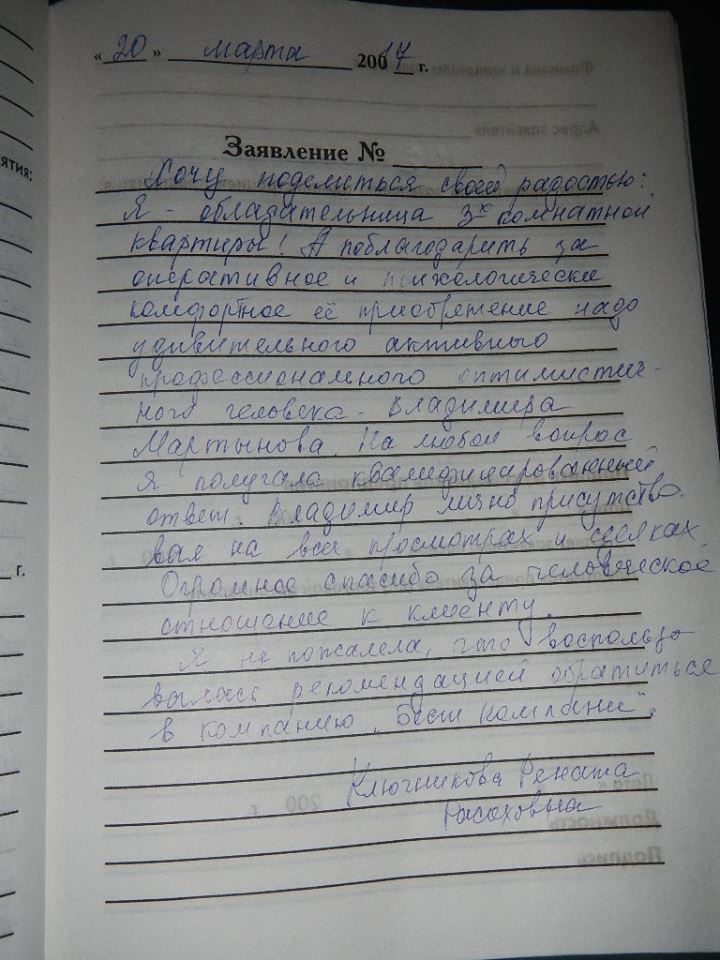 « 20 » марта 20017 г.
Заявление №
Хочу поделиться своей радостью:
Я - обладательница 3х комнатной
квартиры! А поблагодарить за
оперативное и психологически
комфортное её приобретение надо
удивительного активного
профессионального оптимистич-
ного человека - Владимира
Мартынова. На любой вопрос
я получала квалифицированный
ответ. Владимир лично присутство
вал на всех просмотрах и сделках.
Огромное спасибо за человеческое
отношение к клиенту.
Я не пожалела, что воспользо
валась рекомендацией обратиться
в компанию „Бест компани".
Ключникова Рената
ятия:
г.
200 г.
Должность
Подпись